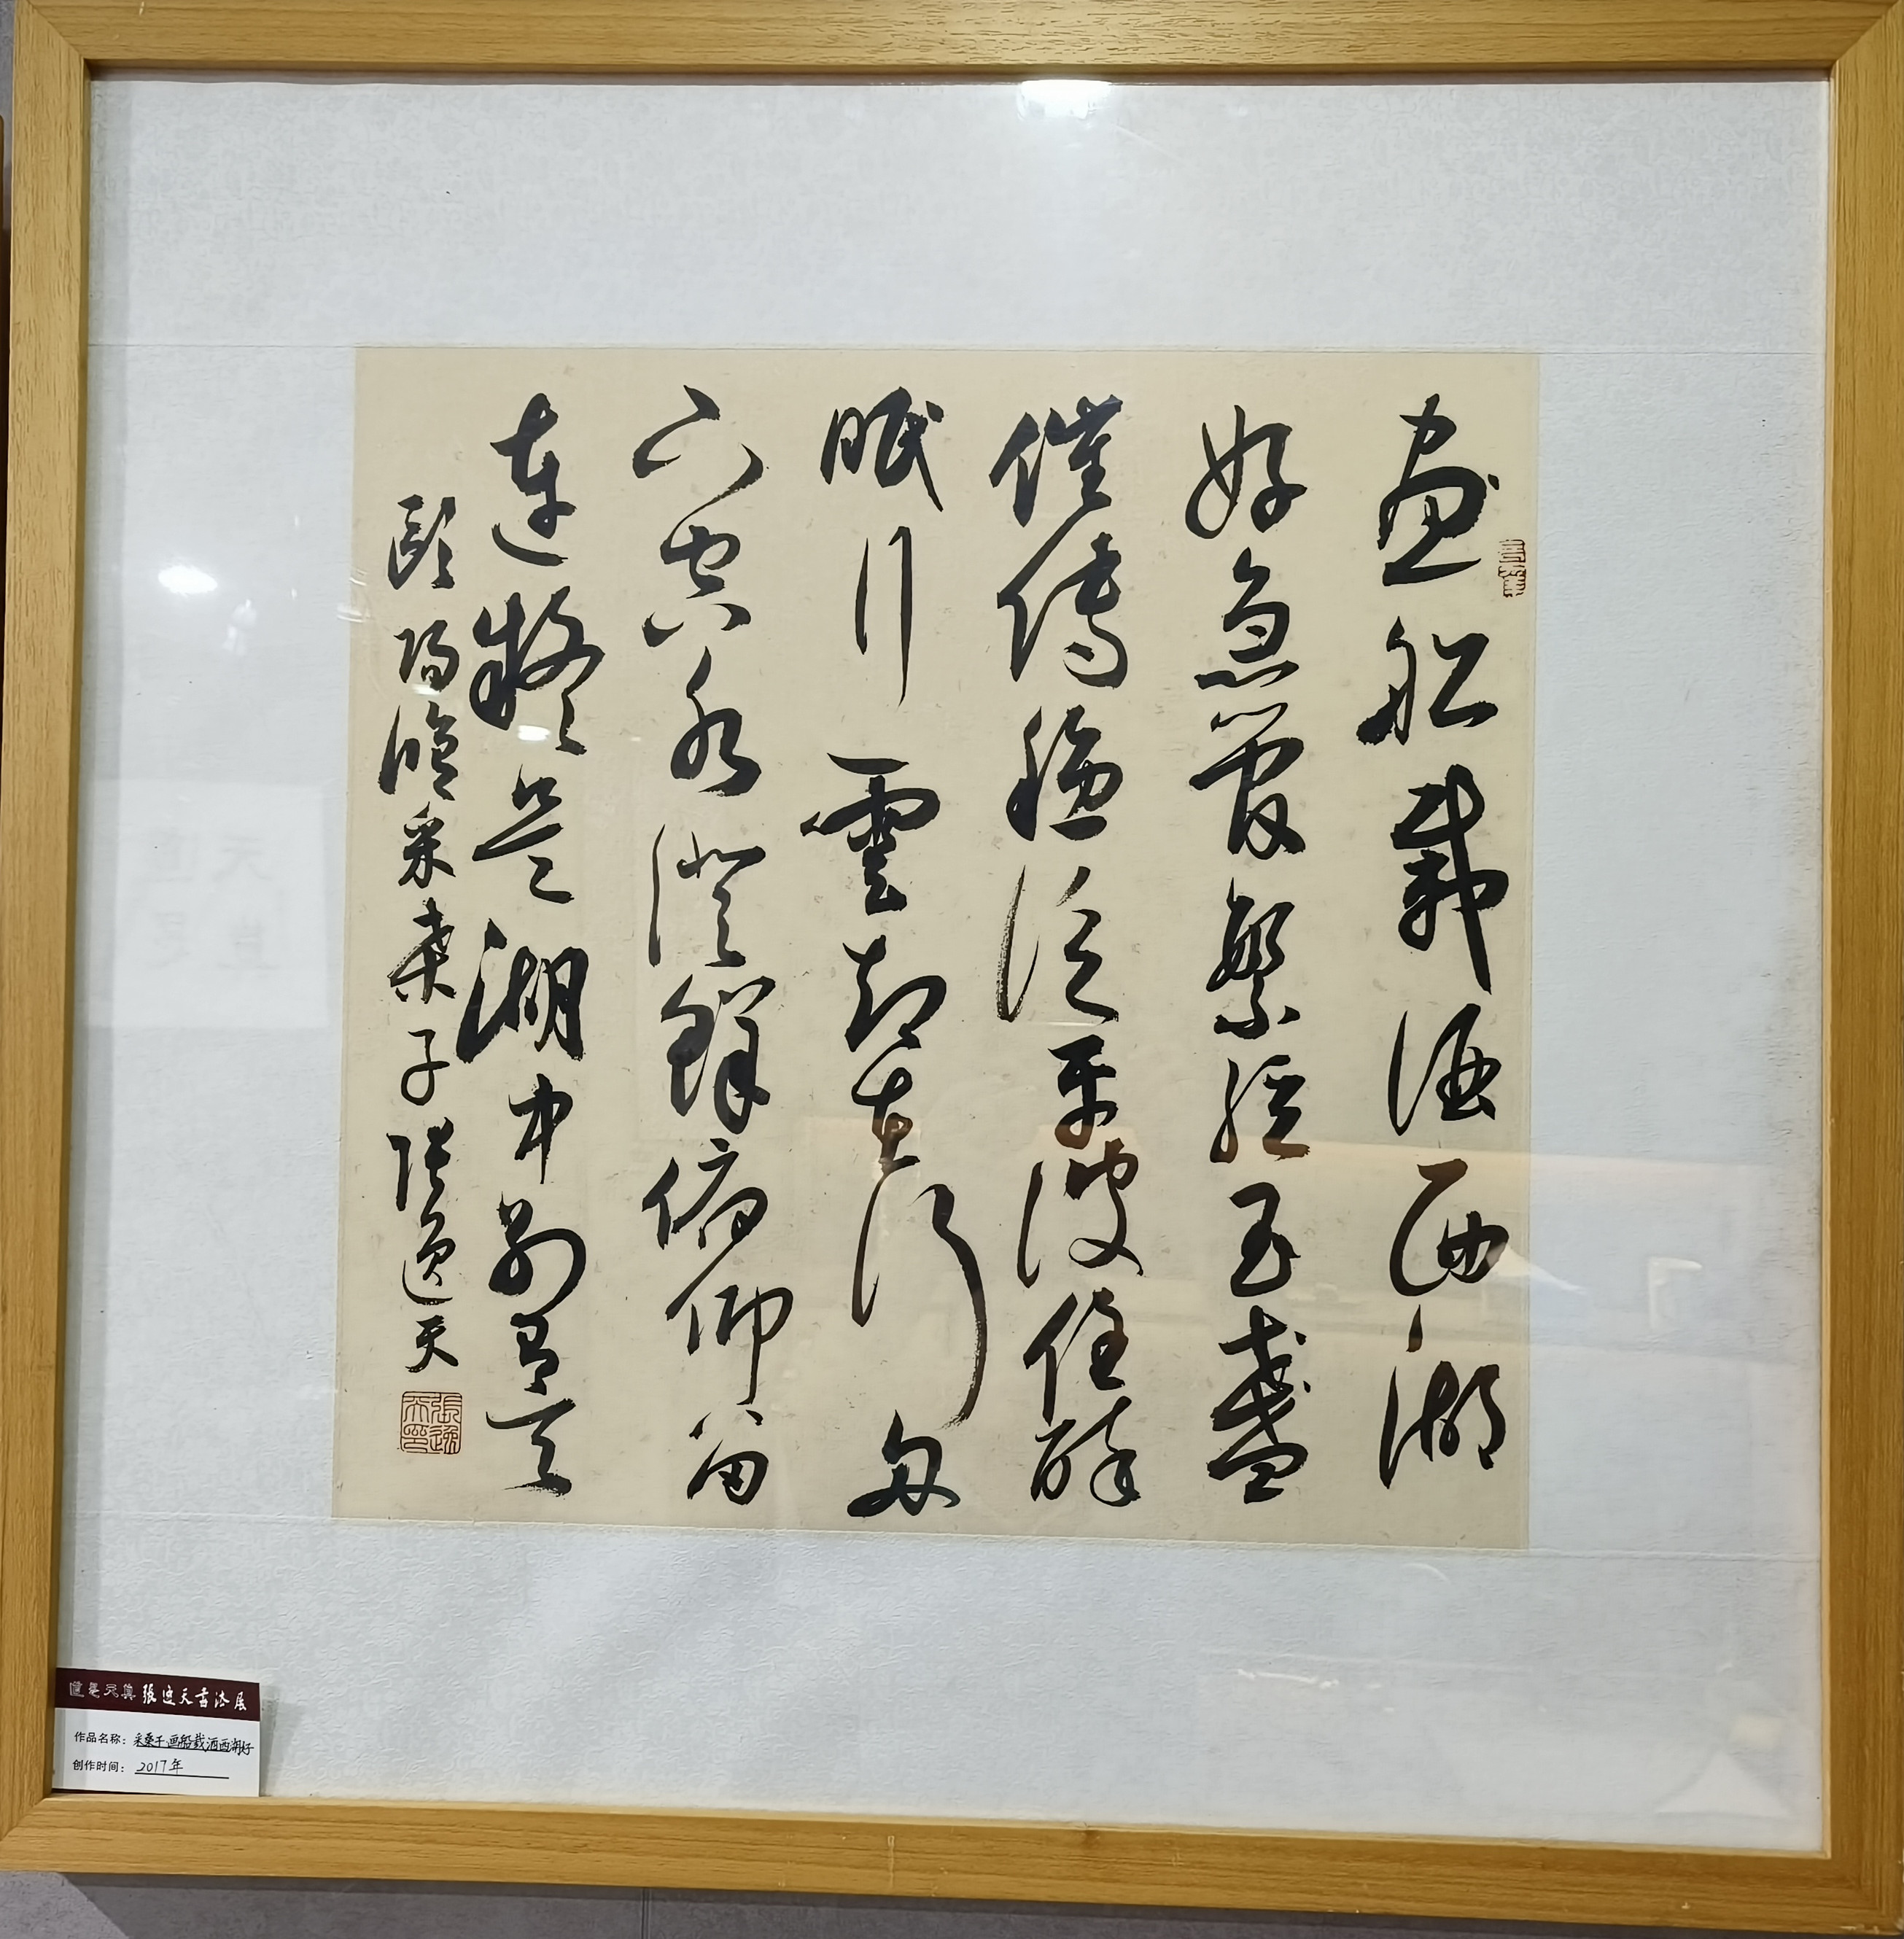 畫船載酒西湖
好急管繁絃玉盞
催傳穩泛平波任醉
眠行雲却在行舟
下空水澄鮮俯仰留
連疑是湖中別有天
歐陽脩采桑子張逸天
張逸天印
道是天真 張逸天書法展
作品名称：采桑子·画船载酒西湖好
创作时间：2017年